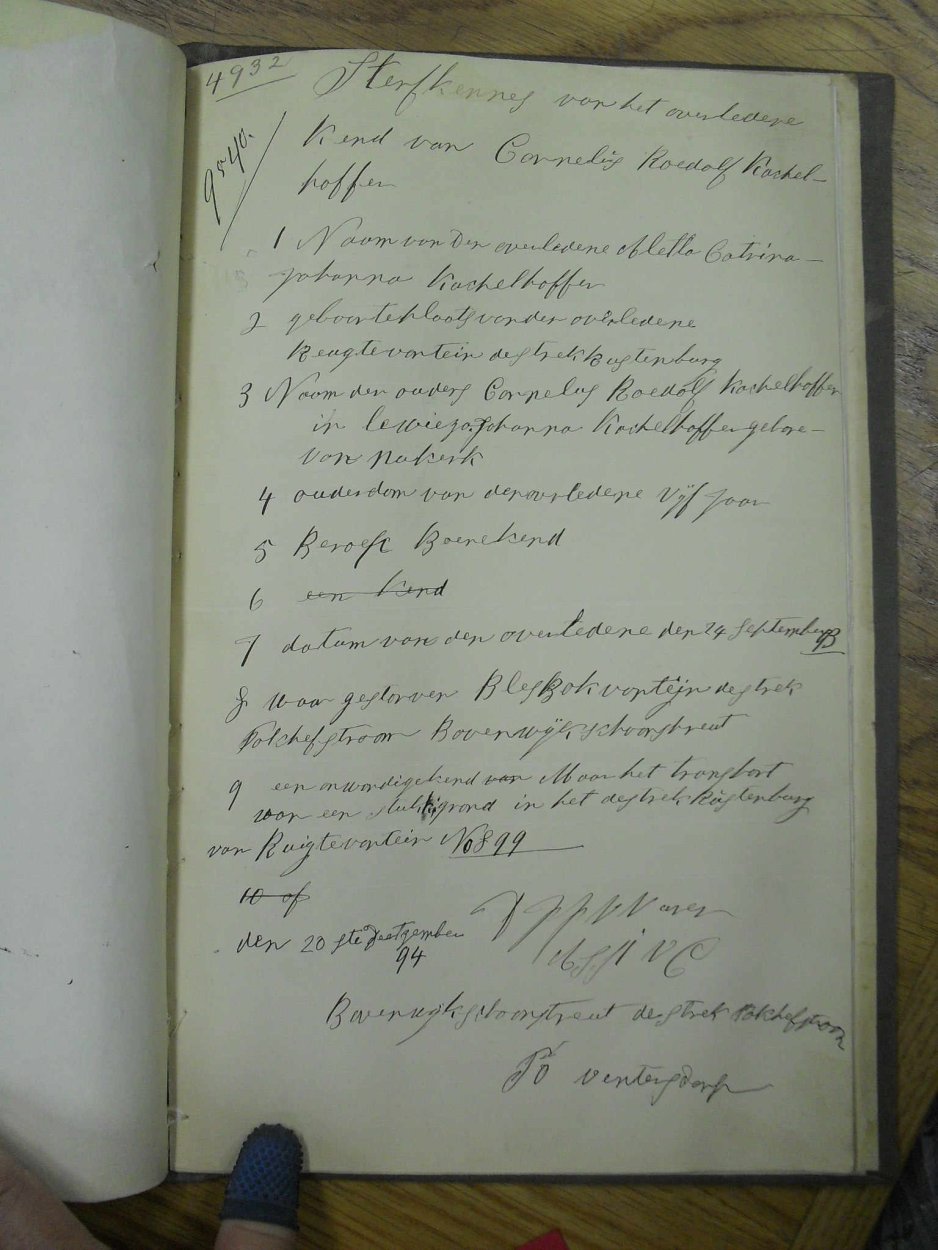 4932
9540.
Sterfkennes van het overledene
Kend van Cornelis Roedolf Kachel-
hoffer
1 Naam van den overledene Aletta Catrina-
Johanna Kachelhoffer
2 geboorteplaats van der overledene
Reugtevontein destrek Rustenburg
3 Naam der ouders Cornelus Roedolf Kachelhoffer
in Lewieza Johanna Kachelhoffer gebore-
van nukerk
4 ouderdom van den overledene vijf jaar
5 Beroep Boerekend
6 een kend
7 datum van den overledene den 24 September 93
8 waar gestorven Blesbok vontein destrek
Potchefstroom Bovenwijk schoonstreut
9 een onwordige kend van Maar het transport
van een stuk grond in het destrek Rustenburg
van Ruigtevontein No 899
10 of
den 20 ste
94
Bovenwijk schoonstreut destrek Potchefstroom
Po ventersdorp